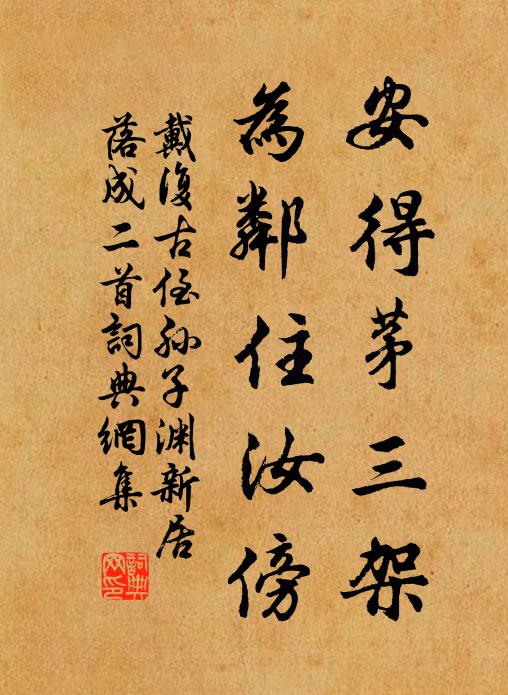 安得茅三架
為鄰住汝傍
戴復古侄孫子淵新居
落成二首詞典網集
詞典网印